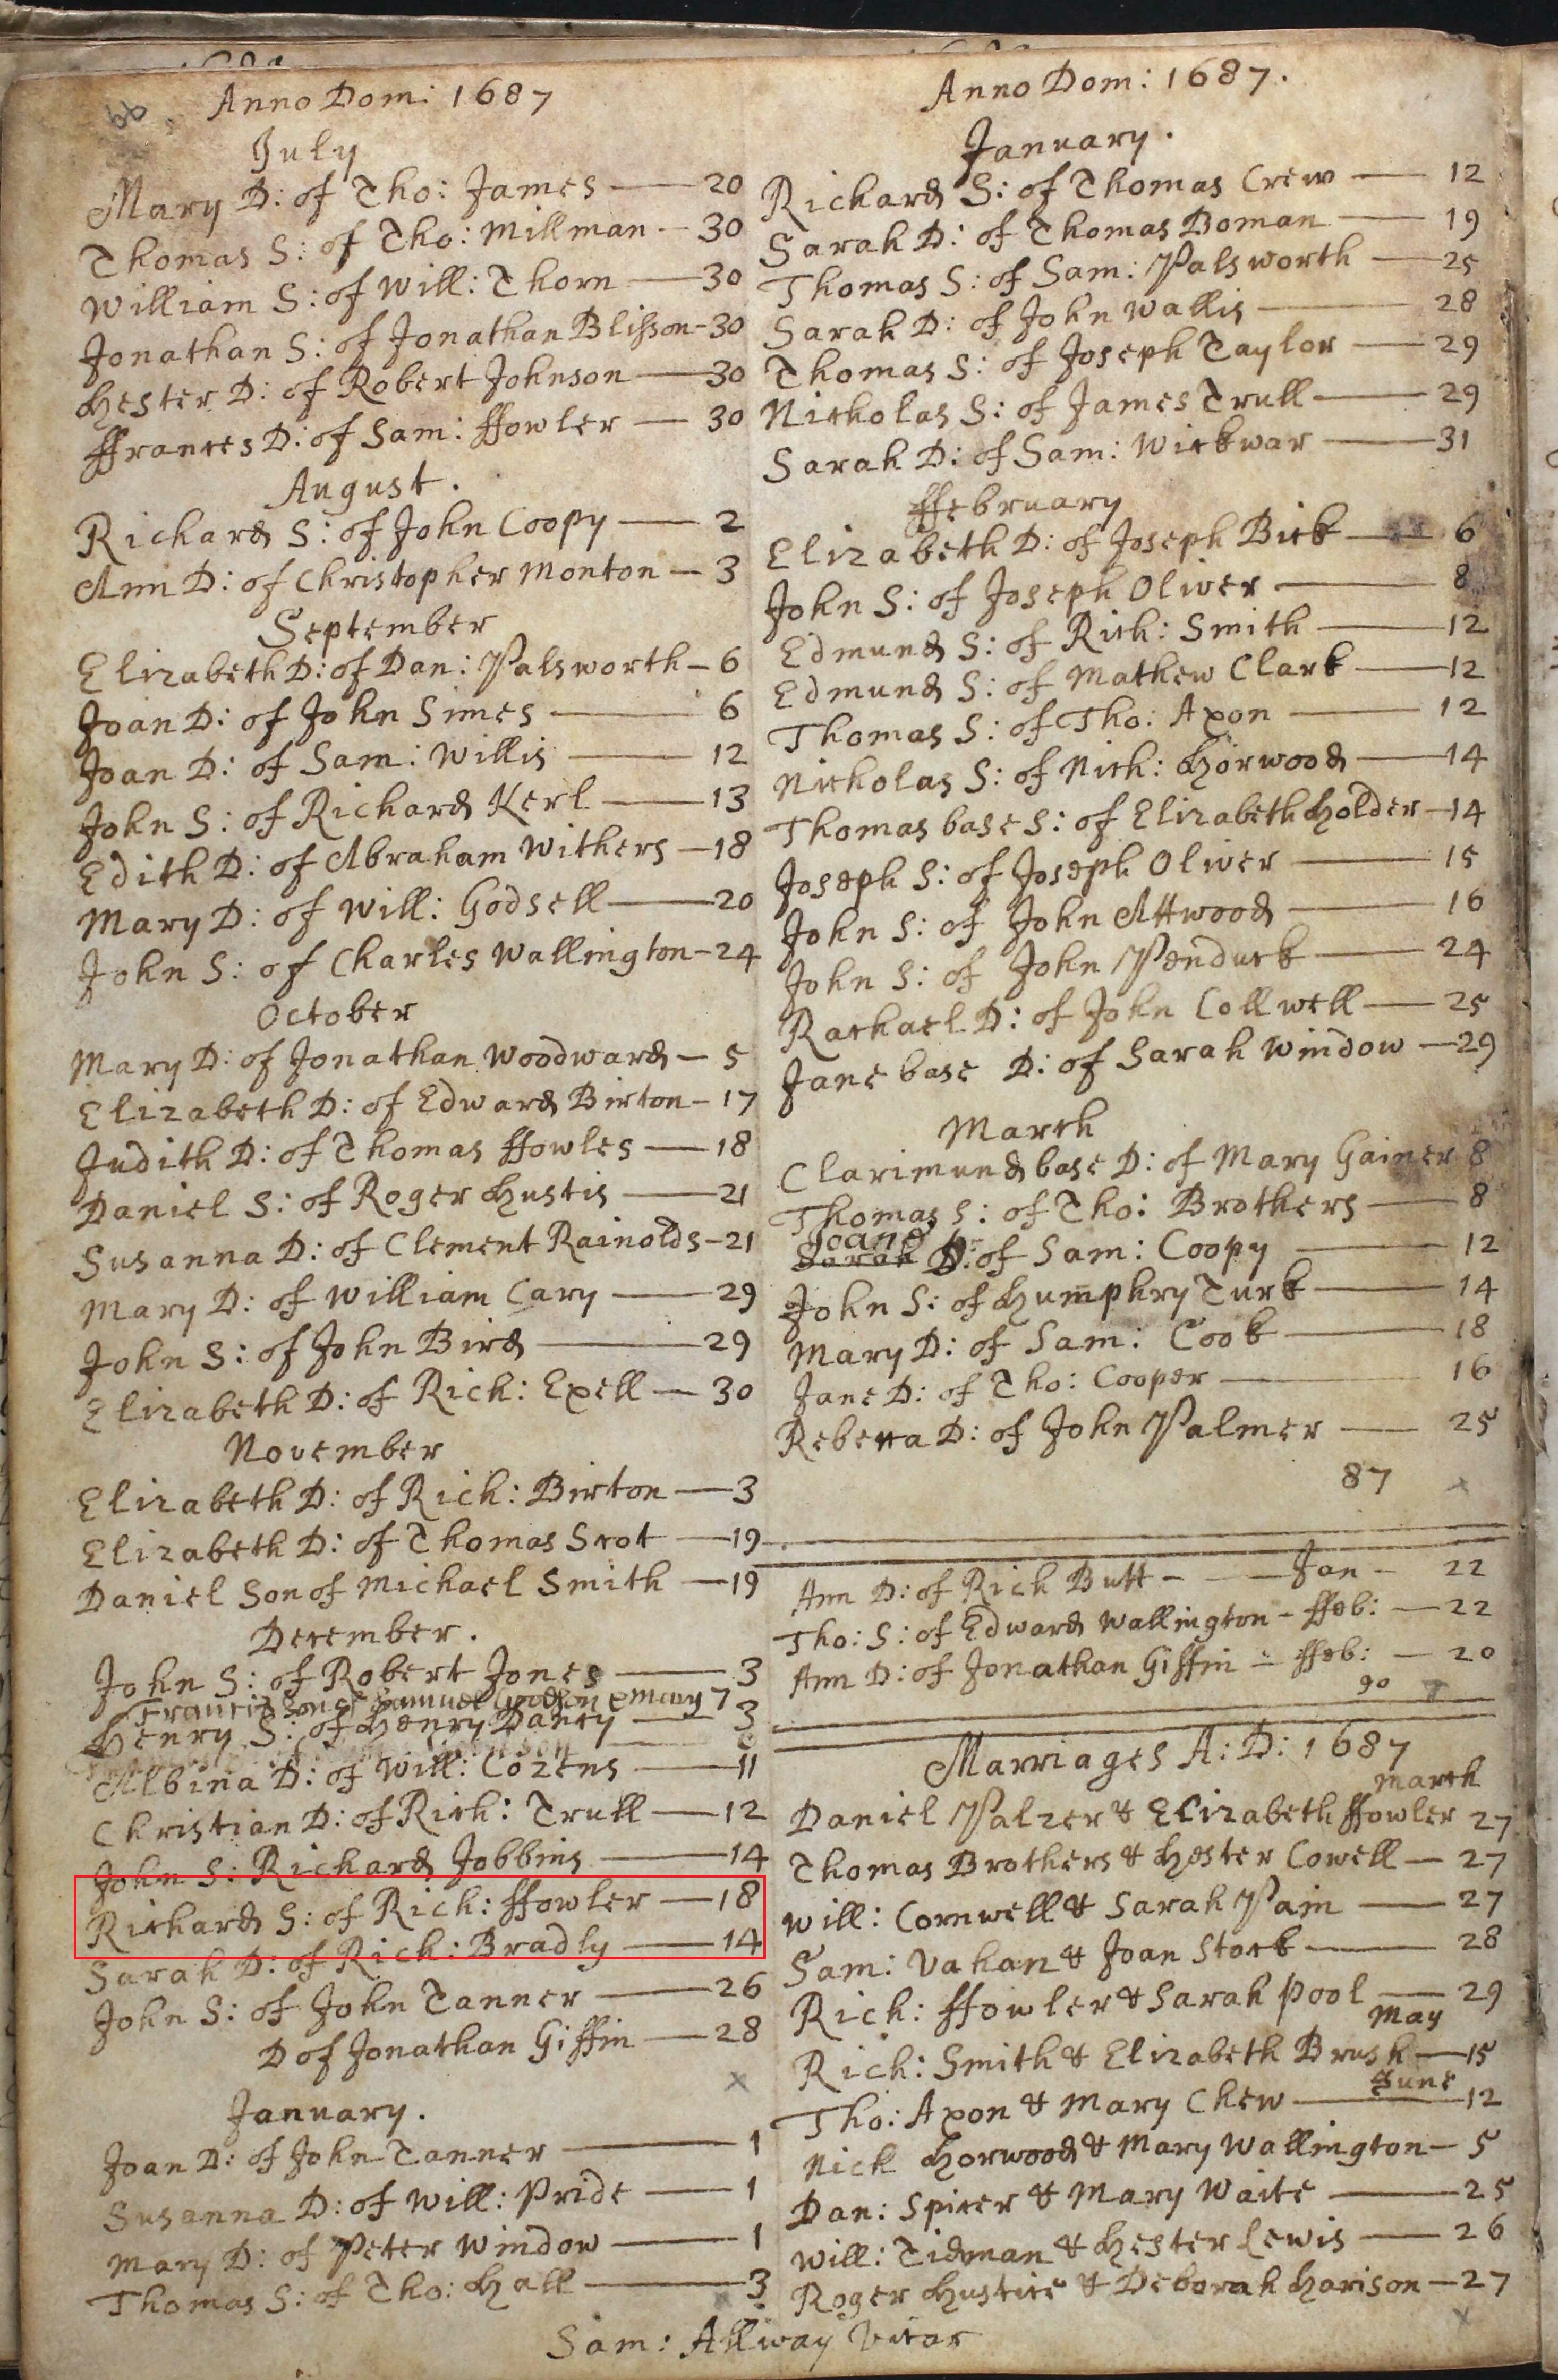 66
Anno Dom: 1687
July
Mary D: of Tho: James — 20
Thomas S: of Tho: Millman - 30
William S: of Will: Thorn — 30
Jonathan S: of Jonathan Blisson - 30
Hester D: of Robert Johnson — 30
ffrances D: of Sam: ffowler — 30
August.
Richard S: of John Coopy — 2
Ann D: of Christopher Monton — 3
September
Elizabeth D: of Dan: Palsworth - 6
Joan D: of John Simes — 6
Joan D: of Sam: Willis — 12
John S: of Richard Kerl — 13
Edith D: of Abraham Withers — 18
Mary D: of Will: Godsell — 20
John S: of Charles Wallington - 24
October
Mary D: of Jonathan Woodward — 5
Elizabeth D: of Edward Birton - 17
Judith D: of Thomas ffowles — 18
Daniel S: of Roger Hustis — 21
Susanna D: of Clement Rainolds - 21
Mary D: of William Cary — 29
John S: of John Bird — 29
Elizabeth D: of Rich: Exell — 30
November
Elizabeth D: of Rich: Birton — 3
Elizabeth D: of Thomas Scot — 19
Daniel Son of Michael Smith — 19
December.
John S: of Robert Jones — 3
Francis Son of Samuel & Mary 7
Henry S: of Henry Dancy — 3
Albina D: of Will: Cozens — 11
Christian D: of Rich: Trull — 12
John S: Richard Jobbins — 14
Richard S: of Rich: ffowler — 18
Sarah D: of Rich: Bradly — 14
John S: of John Tanner — 26
D of Jonathan Giffin — 28
x
January.
Joan D: of John Tanner — 1
Susanna D: of Will: Pride — 1
Mary D: of Peter Window — 1
Thomas S: of Tho: Hall — 3
Anno Dom: 1687.
January.
Richard S: of Thomas Crew — 12
Sarah D: of Thomas Boman — 19
Thomas S: of Sam: Palsworth — 25
Sarah D: of John Wallis — 28
Thomas S: of Joseph Taylor — 29
Nicholas S: of James Trull — 29
Sarah D: of Sam: Wickwar — 31
ffebruary
Elizabeth D: of Joseph Bick — 6
John S: of Joseph Oliver — 8
Edmund S: of Rich: Smith — 12
Edmund S: of Mathew Clark — 12
Thomas S: of Tho: Axon — 12
Nicholas S: of Nich: Horwood — 14
Thomas base S: of Elizabeth Holder - 14
Joseph S: of Joseph Oliver — 15
John S: of John Attwood — 16
John S: of John Penduck — 24
Rachael D: of John Collwell — 25
Jane base D: of Sarah Window — 29
March
Clarimund base D: of Mary Gainer 8
Thomas S: of Tho: Brothers — 8
Joane
Sarah D: of Sam: Coopy — 12
John S: of Humphry Turk — 14
Mary D: of Sam: Cook — 18
Jane D: of Tho: Cooper — 16
Rebecca D: of John Palmer — 25
87 x
Ann D: of Rich Butt - — Jan - 22
Tho: S: of Edward Wallington - ffeb: — 22
Ann D: of Jonathan Giffin - ffeb: — 20
90
Marriages A: D: 1687
March
Daniel Palzer & Elizabeth ffowler 27
Thomas Brothers & Hester Cowell — 27
Will: Cornwell & Sarah Pain — 27
Sam: Vahan & Joan Stock — 28
Rich: ffowler & Sarah Pool — 29
May
Rich: Smith & Elizabeth Brush — 15
June
Tho: Axon & Mary Chew — 12
Nick Horwood & Mary Wallington — 5
Dan: Spicer & Mary Waite — 25
Will: Tidman & Hester Lewis — 26
Roger Hustice & Deborah Harison — 27
x
Sam: Allway Vicar